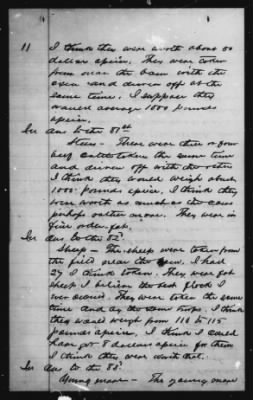 11 I think they were worth about 50
dollars apiece. They were taken
from near the barn with the
oxen and driven off at the
same time. I suppose they
would average 1000 pounds
apiece.
In Ans to the 81st
Steers - There were three or four
beef cattle taken the same time
and driven off with the
I think they would weigh about
1000 pounds apiece. I think they
were worth as much as the cows
perhaps rather more. They were in
fine order, fat.
In Ans to the 82d
Sheep - The sheep were taken from
the field near the I had
27 I think taken. They were fat
sheep I believe the best flock I
ever owned. They were taken the same
time and by the same troops. I think
they would weigh from 110 to 115
pounds apiece. I think I could
have got 8 dollars apiece for them
I think they were worth that.
In Ans to the 83d
Young mare - The young mare